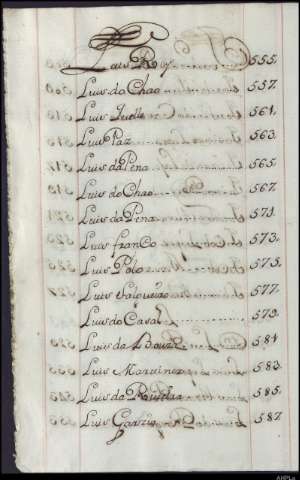 Luis Roiz 555.
Luis do Chao 557.
Luis 561.
Luis Paz 563.
Luis da Pena 565.
Luis do Chao 567.
Luis da Pena 571.
Luis franCo 573.
Luis Polo 575.
Luis Salgueiro 577.
Luis do Casal 579.
Luis da 581
Luis Martinez 583.
Luis da 585.
Luis Garzia 587
AHPLe